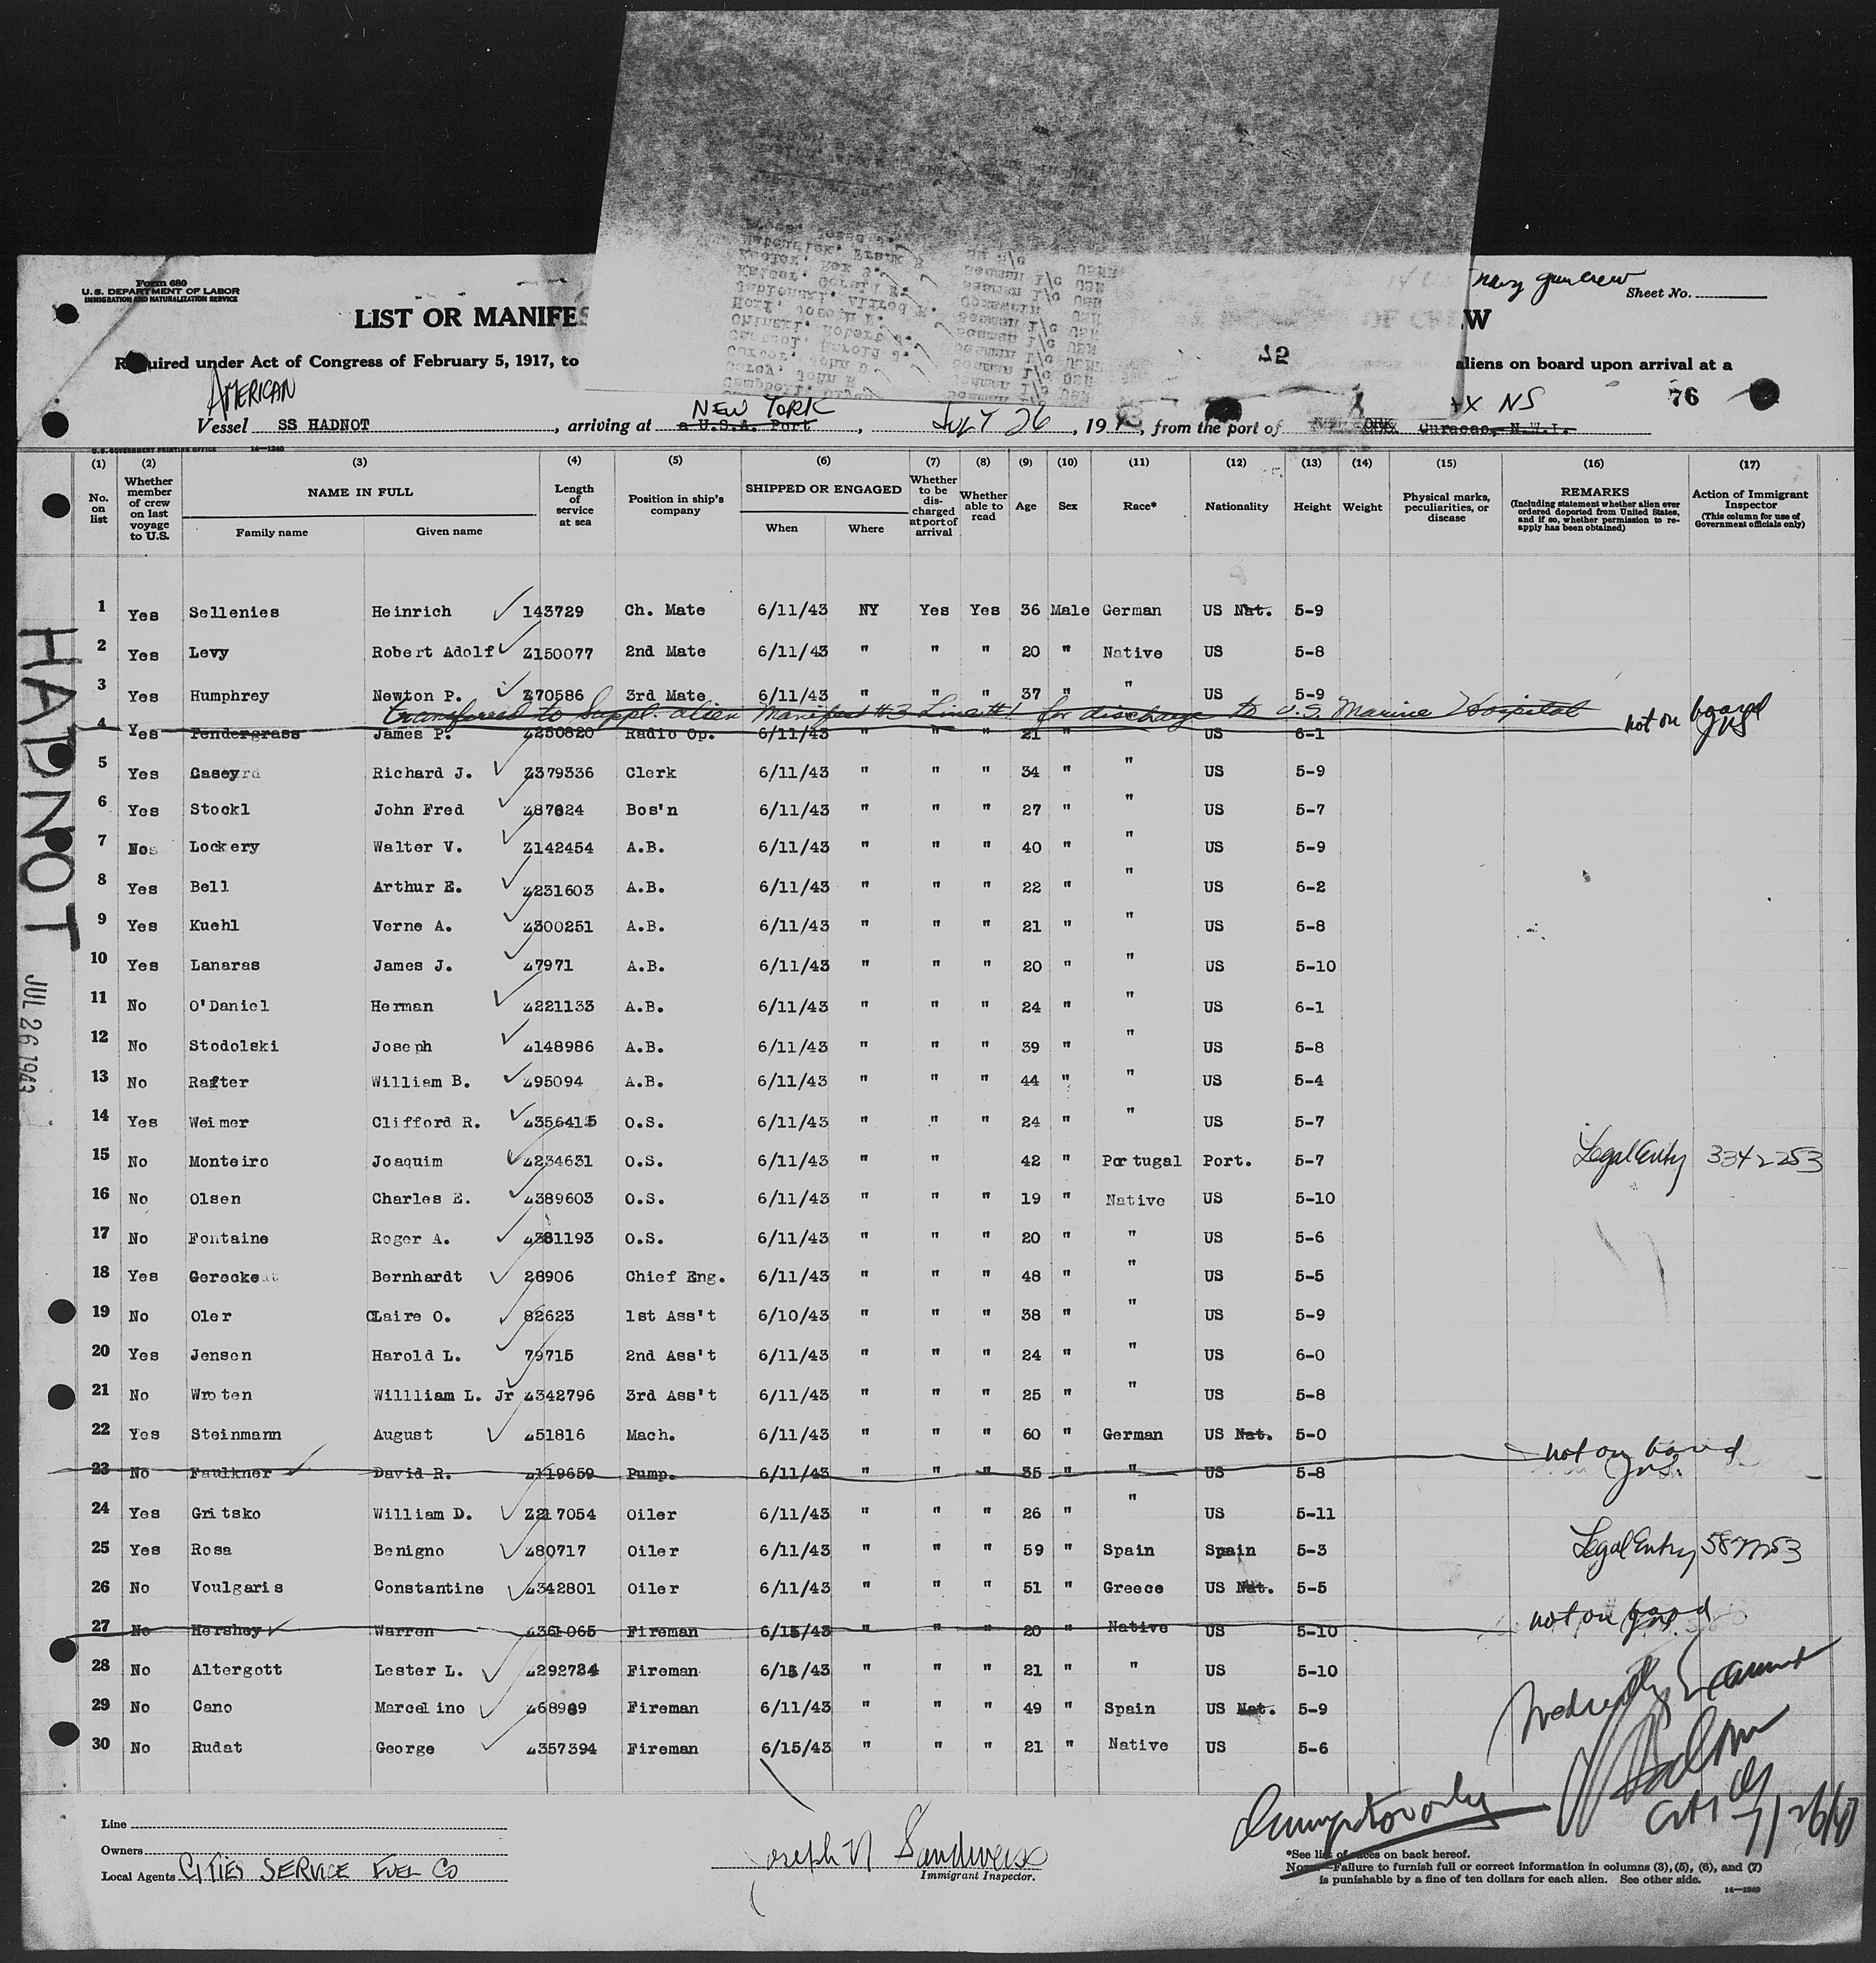 Form 680
U.S. DEPARTMENT OF LABOR
IMMIGRATION AND NATURALIZATION SERVICE
navy gun crew
Sheet No.
LIST OR MANIFES W
Required under Act of Congress of February 5, 1917, to aliens on board upon arrival at a
AMERICAN
76
Vessel SS HADNOT, arriving at NEW YORK a U.S.A. Port, JULY 26, 19, from the port of Curacao, N.W.I. NS
U.S. GOVERNMENT PRINTING OFFICE 14—1240
(1) (2) (3) (4) (5) (6) (7) (8) (9) (10) (11) (12) (13) (14) (15) (16) (17)
No. on list
Whether member of crew on last voyage to U.S.
NAME IN FULL
Family name
Given name
Length of service at sea
Position in ship's company
SHIPPED OR ENGAGED
When
Where
Whether to be discharged at port of arrival
Whether able to read
Age
Sex
Race*
Nationality
Height
Weight
Physical marks, peculiarities, or disease
REMARKS
(Including statement whether alien ever ordered deported from United States, and if so, whether permission to reapply has been obtained)
Action of Immigrant Inspector
(This column for use of Government officials only)
1 Yes Sellenies Heinrich 143729 Ch. Mate 6/11/43 NY Yes Yes 36 Male German US Nat. 5-9
2 Yes Levy Robert Adolf Z150077 2nd Mate 6/11/43 " " " 20 " Native US 5-8
3 Yes Humphrey Newton P. Z70586 3rd Mate 6/11/43 " " " 37 " " US 5-9
transferred to Suppl. alien Manifest #3 Line #1 for discharge to U.S. Marine Hospital
4 Yes Pendergrass James P. Z250820 Radio Op. 6/11/43 " " " 21 " US 6-1 not on board
5 Yes Casey Richard J. Z379336 Clerk 6/11/43 " " " 34 " " US 5-9
6 Yes Stockl John Fred Z87824 Bos'n 6/11/43 " " " 27 " " US 5-7
7 Lockery Walter V. Z142454 A.B. 6/11/43 " " " 40 " " US 5-9
8 Yes Bell Arthur E. Z231603 A.B. 6/11/43 " " " 22 " " US 6-2
9 Yes Kuehl Verne A. Z300251 A.B. 6/11/43 " " " 21 " " US 5-8
10 Yes Lanaras James J. Z7971 A.B. 6/11/43 " " " 20 " " US 5-10
11 No O'Daniel Herman Z221133 A.B. 6/11/43 " " " 24 " " US 6-1
12 No Stodolski Joseph Z148986 A.B. 6/11/43 " " " 39 " " US 5-8
13 No Rafter William B. Z95094 A.B. 6/11/43 " " " 44 " " US 5-4
14 Yes Weimer Clifford R. Z356415 O.S. 6/11/43 " " " 24 " " US 5-7
15 No Monteiro Joaquim Z234631 O.S. 6/11/43 " " " 42 " Portugal Port. 5-7 Legal Entry 3342253
16 No Olsen Charles E. Z389603 O.S. 6/11/43 " " " 19 " Native US 5-10
17 No Fontaine Roger A. Z381193 O.S. 6/11/43 " " " 20 " " US 5-6
18 Yes Gerecke Bernhardt 28906 Chief Eng. 6/11/43 " " " 48 " " US 5-5
19 No Oler Claire O. 82623 1st Ass't 6/10/43 " " " 38 " " US 5-9
20 Yes Jensen Harold L. 79715 2nd Ass't 6/11/43 " " " 24 " " US 6-0
21 No Wroten Willliam L. Jr Z342796 3rd Ass't 6/11/43 " " " 25 " " US 5-8
22 Yes Steinmann August Z51816 Mach. 6/11/43 " " " 60 " German US Nat. 5-0
23 No Faulkner David R. Z119659 Pump. 6/11/43 " " " 35 " " US 5-8 not on board
24 Yes Gritsko William D. Z217054 Oiler 6/11/43 " " " 26 " " US 5-11
25 Yes Rosa Benigno Z80717 Oiler 6/11/43 " " " 59 " Spain Spain 5-3 Legal Entry
26 No Voulgaris Constantine Z342801 Oiler 6/11/43 " " " 51 " Greece US Nat. 5-5
27 No Hershey Warren Z361065 Fireman 6/15/43 " " " 20 " Native US 5-10 not on board
28 No Altergott Lester L. Z292784 Fireman 6/15/43 " " " 21 " " US 5-10
29 No Cano Marcelino Z68989 Fireman 6/11/43 " " " 49 " Spain US Nat. 5-9
30 No Rudat George Z357394 Fireman 6/15/43 " " " 21 " Native US 5-6
HADNOT
JUL 26 1943
Line
Owners
Local Agents CITIES SERVICE FUEL CO
Joseph Sandweiss
Immigrant Inspector.
*See list of races on back hereof.
NOTE.—Failure to furnish full or correct information in columns (3), (5), (6), and (7)
is punishable by a fine of ten dollars for each alien. See other side.
14—1240